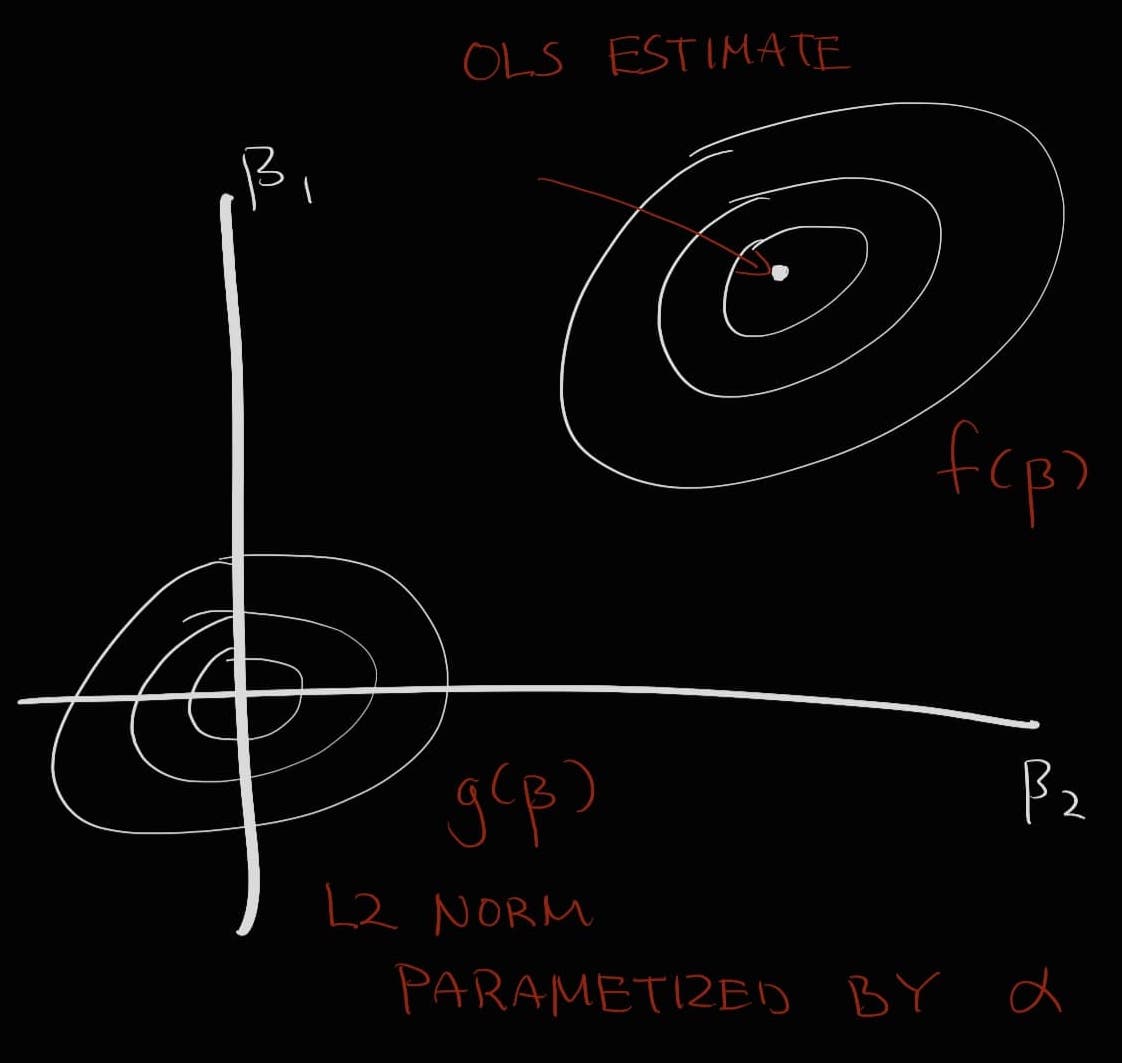 OLS ESTIMATE
β₁
f(β)
β₂
g(β)
L2 NORM
PARAMETIZED BY α